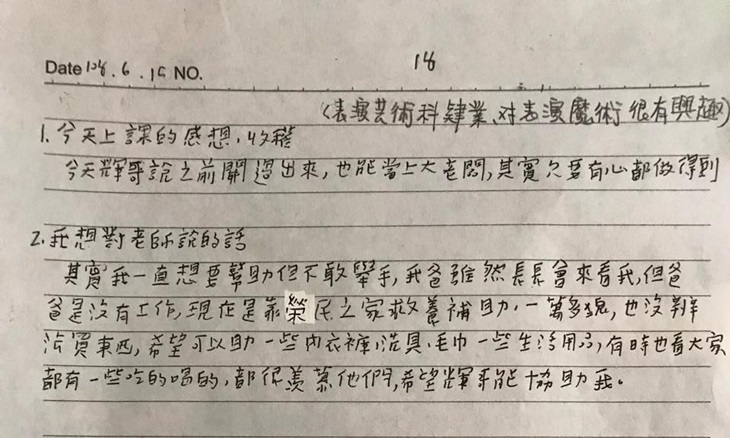 Date 108.6.15 NO.
18
(表演芸術科肄業、对表演魔術很有興趣)
1.今天上課的感想,收穫
今天輝哥說之前關過出來,也能當上大老闆,其實只要有心都做得到
2.我想對老師說的話
其實我一直想要幫助但不敢舉手,我爸雖然長長會來看我,但爸
爸是沒有工作,現在是靠榮民之家救養補助,一萬多塊,也沒辦
法買東西,希望可以助一些內衣褲、洗具、毛巾一些生活用品,有時也看大家
都有一些吃的喝的,都很羨慕他們,希望輝哥能協助我。